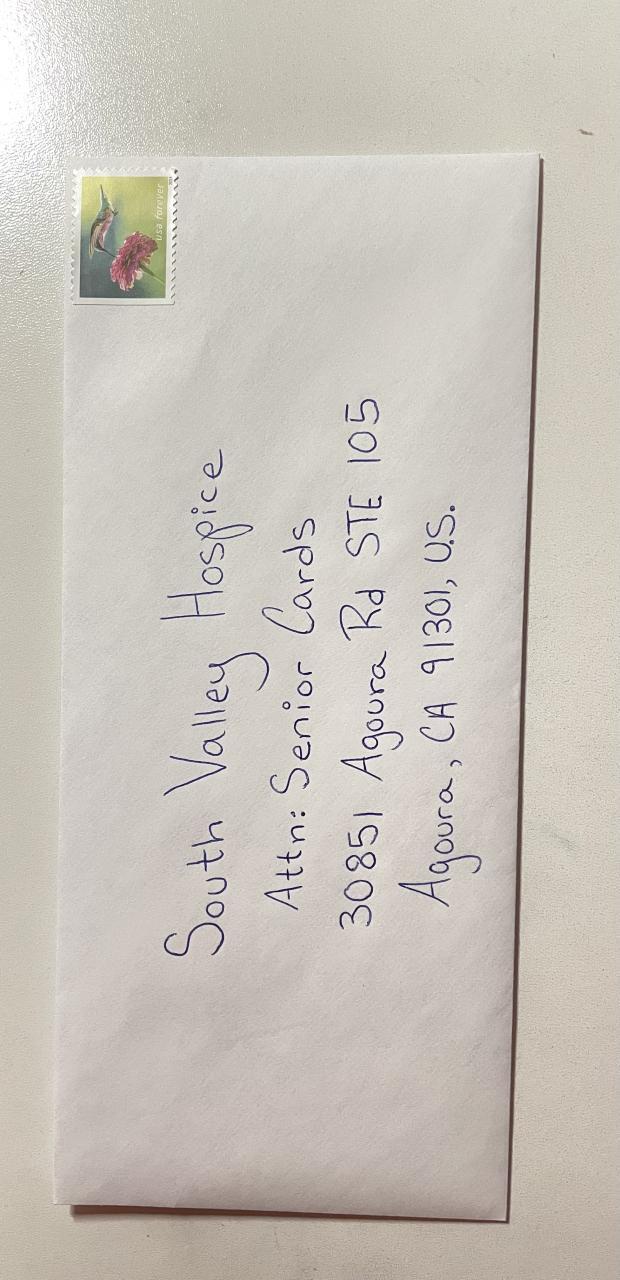 usa forever
South Valley Hospice
Attn: Senior Cards
30851 Agoura Rd STE 105
Agoura, CA 91301, U.S.